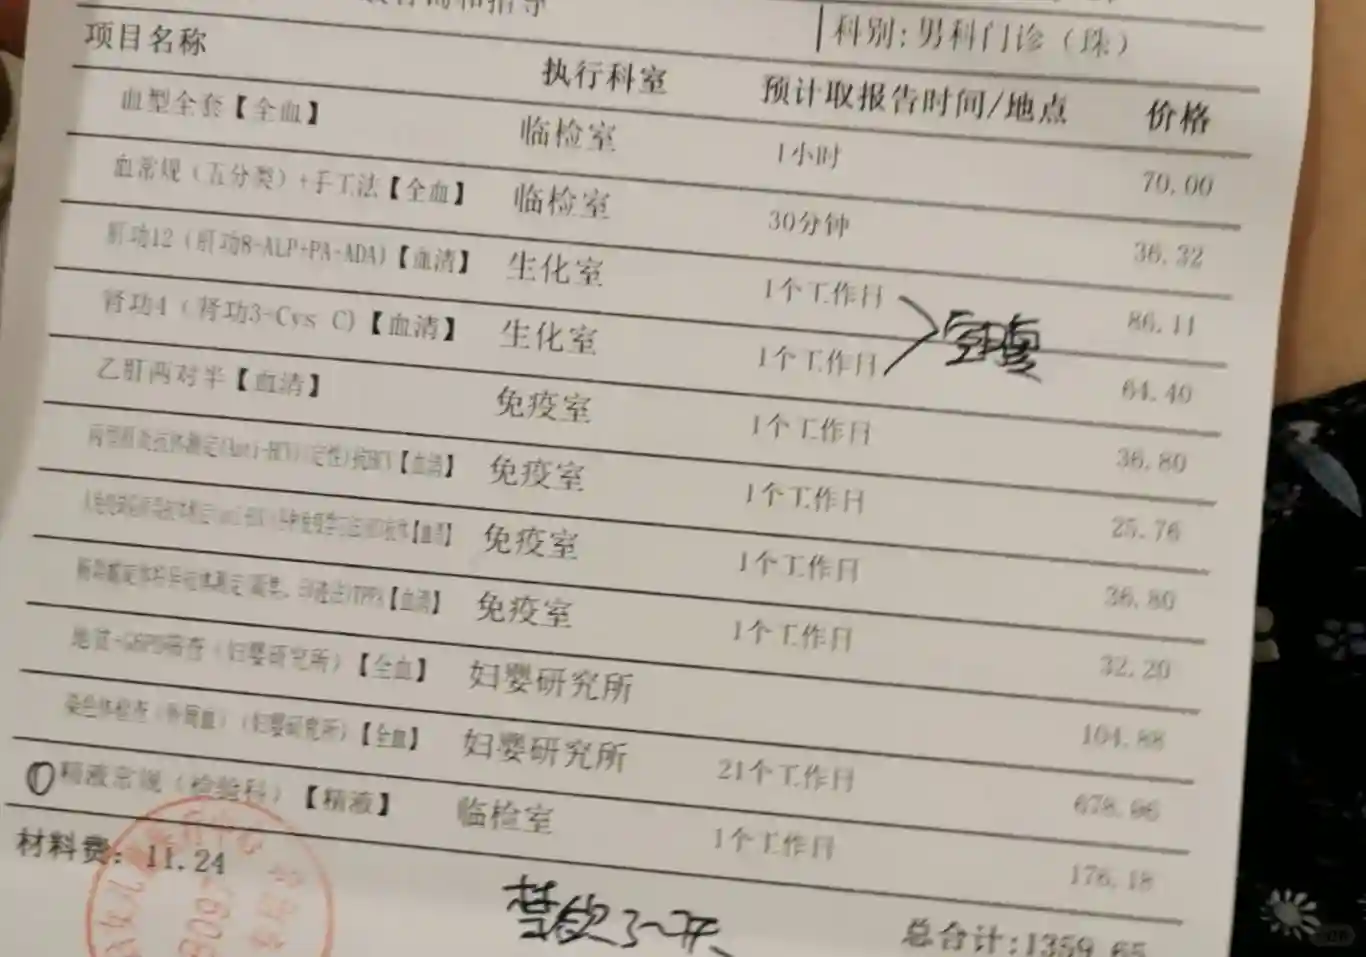 科别：男科门诊（珠）
项目名称 执行科室 预计取报告时间/地点 价格
血型全套【全血】 临检室 1小时 70.00
血常规（五分类）+手工法【全血】 临检室 30分钟 36.32
肝功12（肝功8-ALP+PA-ADA)【血清】 生化室 1个工作日 86.11
肾功4（肾功3-Cys C)【血清】 生化室 1个工作日 64.40
空腹
乙肝两对半【血清】 免疫室 1个工作日 36.80
丙型肝炎抗体测定(Anti-HCV)(定性)抗HCV【血清】 免疫室 1个工作日 25.76
【血清】 免疫室 1个工作日 36.80
梅毒螺旋体特异抗体测定(凝集、印迹法)TPPA【血清】 免疫室 1个工作日 32.20
地贫-G6PD筛查（妇婴研究所）【全血】 妇婴研究所 104.88
染色体检查（外周血）（妇婴研究所）【全血】 妇婴研究所 21个工作日 678.96
精液常规（检验科）【精液】 临检室 1个工作日 176.18
材料费：11.24
禁欲3~7天
总合计:1359.65